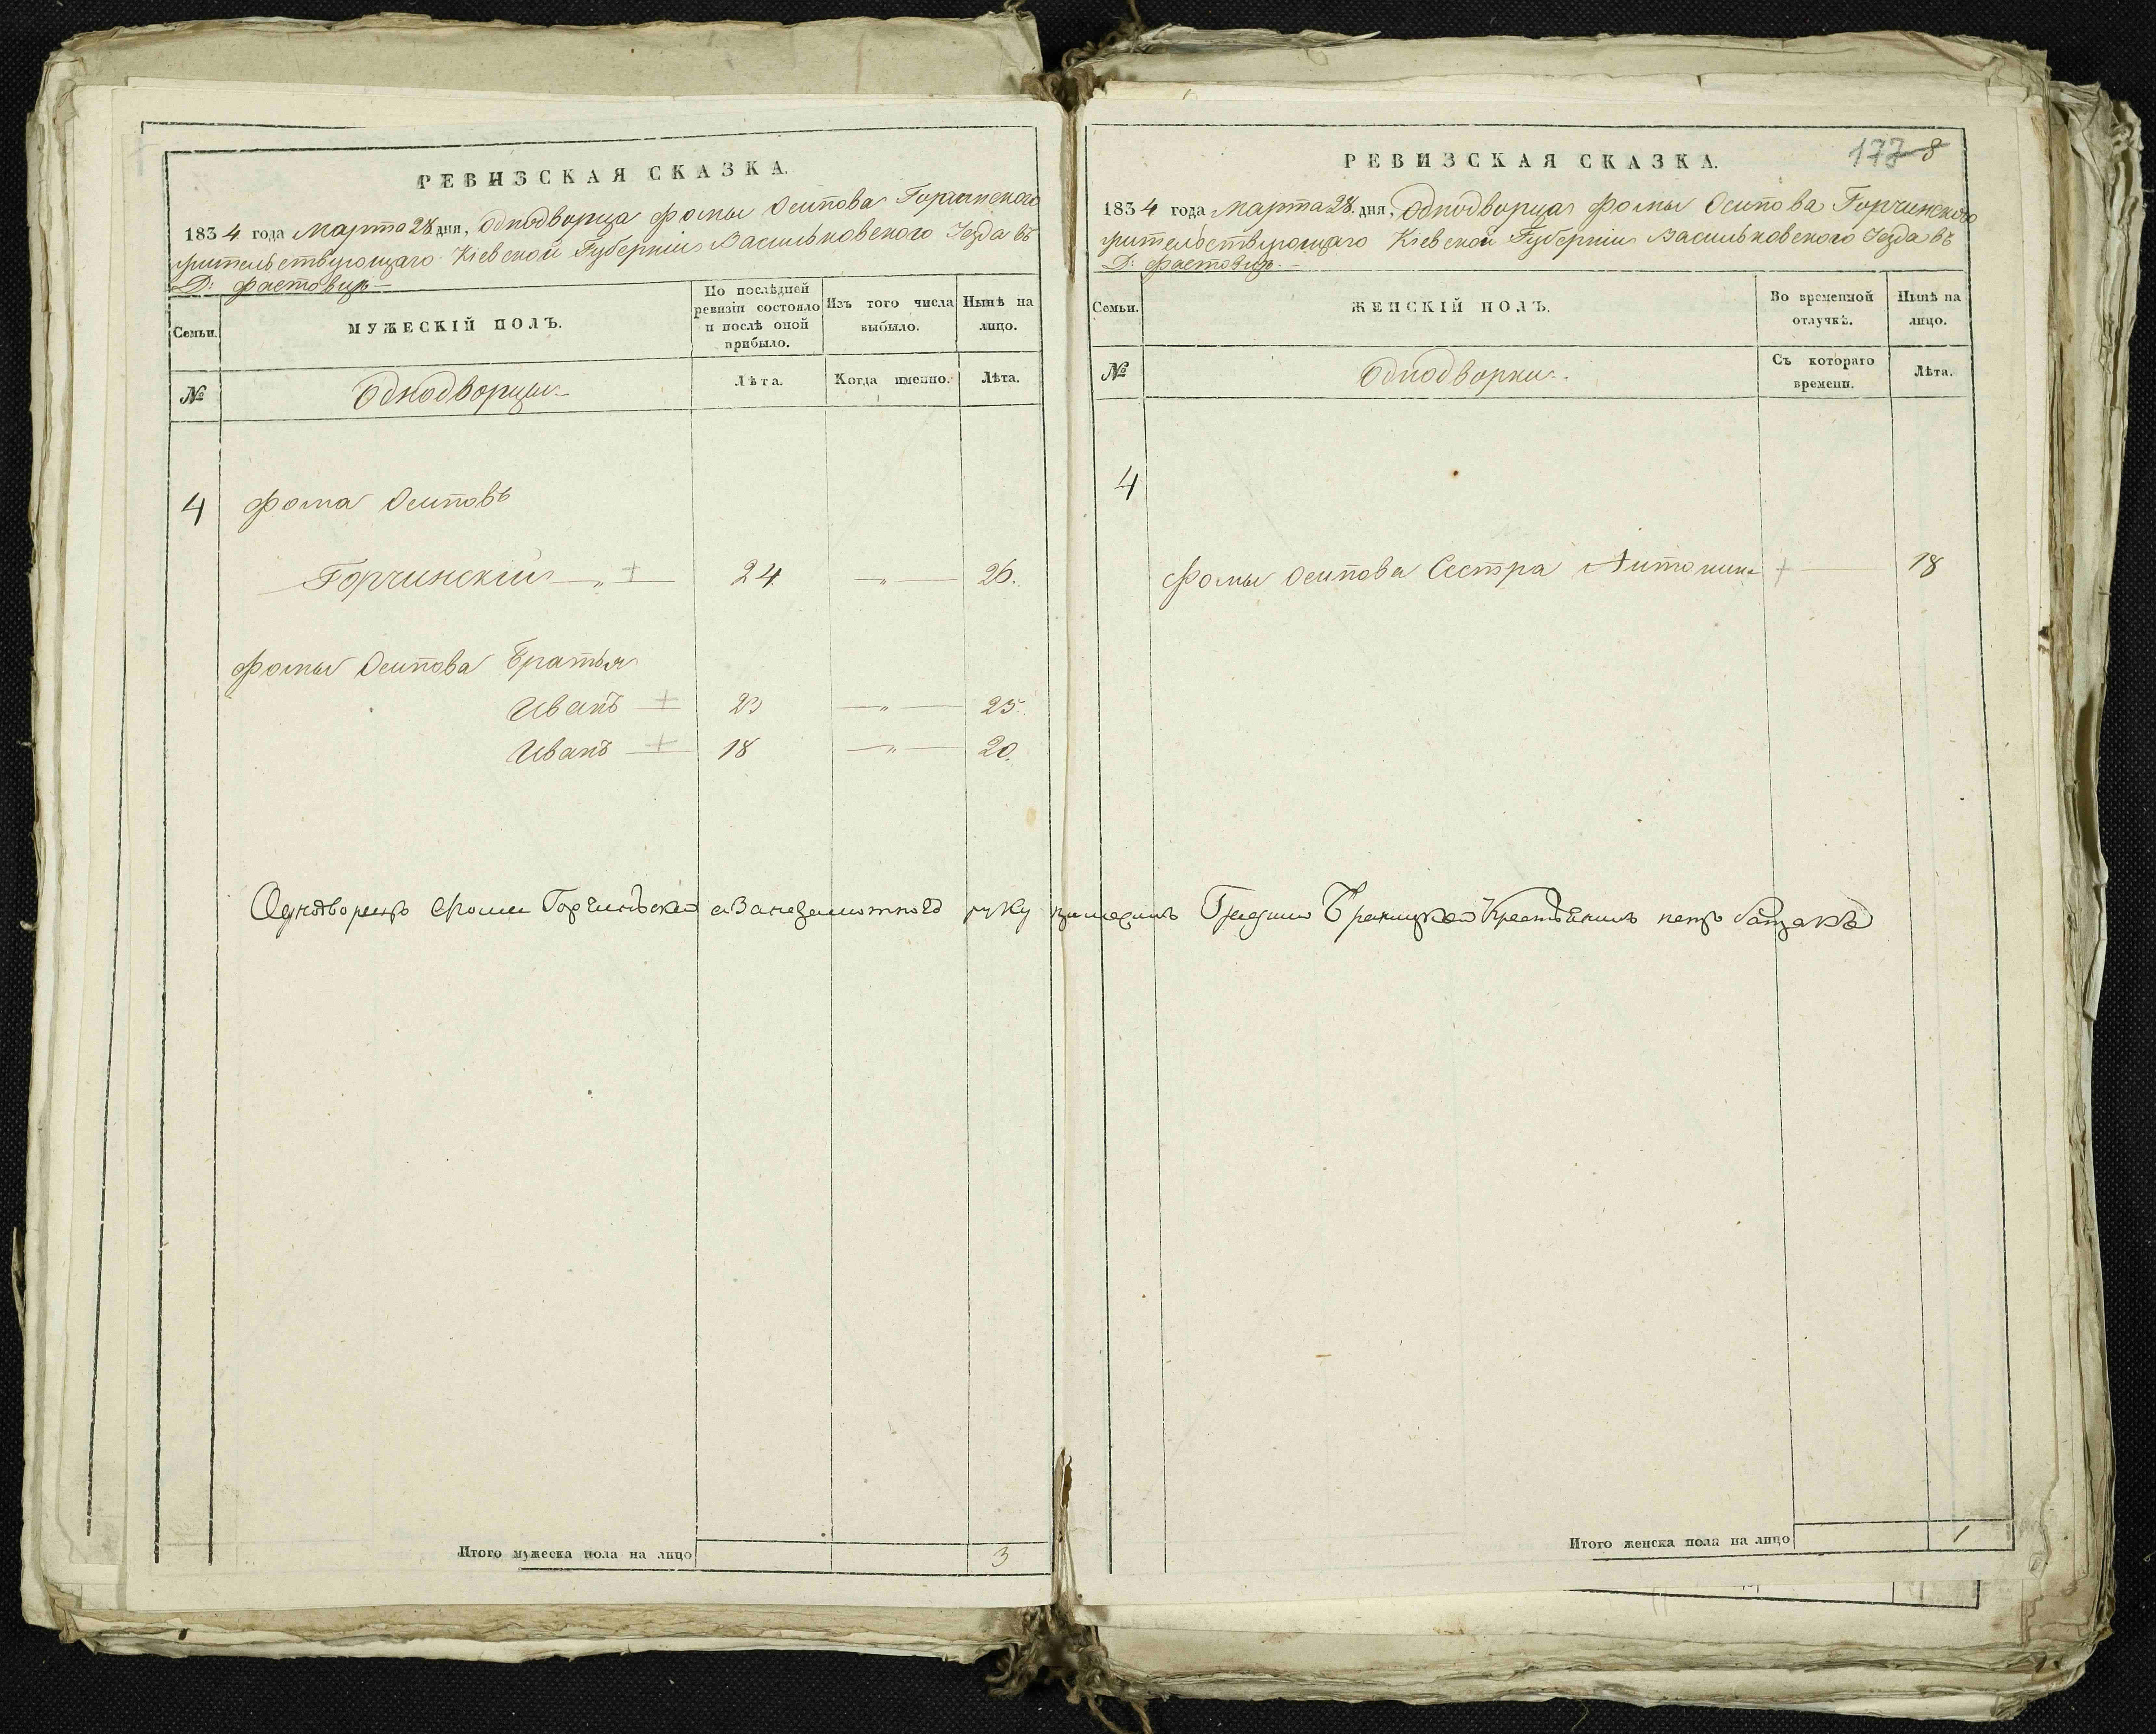 РЕВИЗСКАЯ СКАЗКА.
1834 года Марта 28 дня, Однодворца Фомы Осипова Горчинского
жительствующаго Кіевской Губерніи Васильковского Уезда въ
Д: Фастовце
Семьи.
МУЖЕСКІЙ ПОЛЪ.
По послѣдней ревизіи состояло и послѣ оной прибыло.
Изъ того числа выбыло.
Нынѣ на лицо.
№
Однодворцы
Лѣта.
Когда именно.
Лѣта.
4 Фома Осиповъ
Горчинскій 24 — 26.
Фомы Осипова Братья
Иванъ 23 — 25.
Иванъ 18 — 20.
Итого мужеска пола на лицо 3
1778
РЕВИЗСКАЯ СКАЗКА.
1834 года Марта 28 дня, Однодворца Фомы Осипова Горчинского
жительствующаго Кіевской Губерніи Васильковского Уезда въ
Д: Фастовце
Семьи.
ЖЕНСКІЙ ПОЛЪ.
Во временной отлучкѣ.
Нынѣ на лицо.
№
Однодворки
Съ котораго времени.
Лѣта.
4
Фомы Осипова Сестра Антонина 18
Однодворецъ Фома Горчинъскай руку Браницкой Крестьянинъ
Итого женска пола на лицо 1